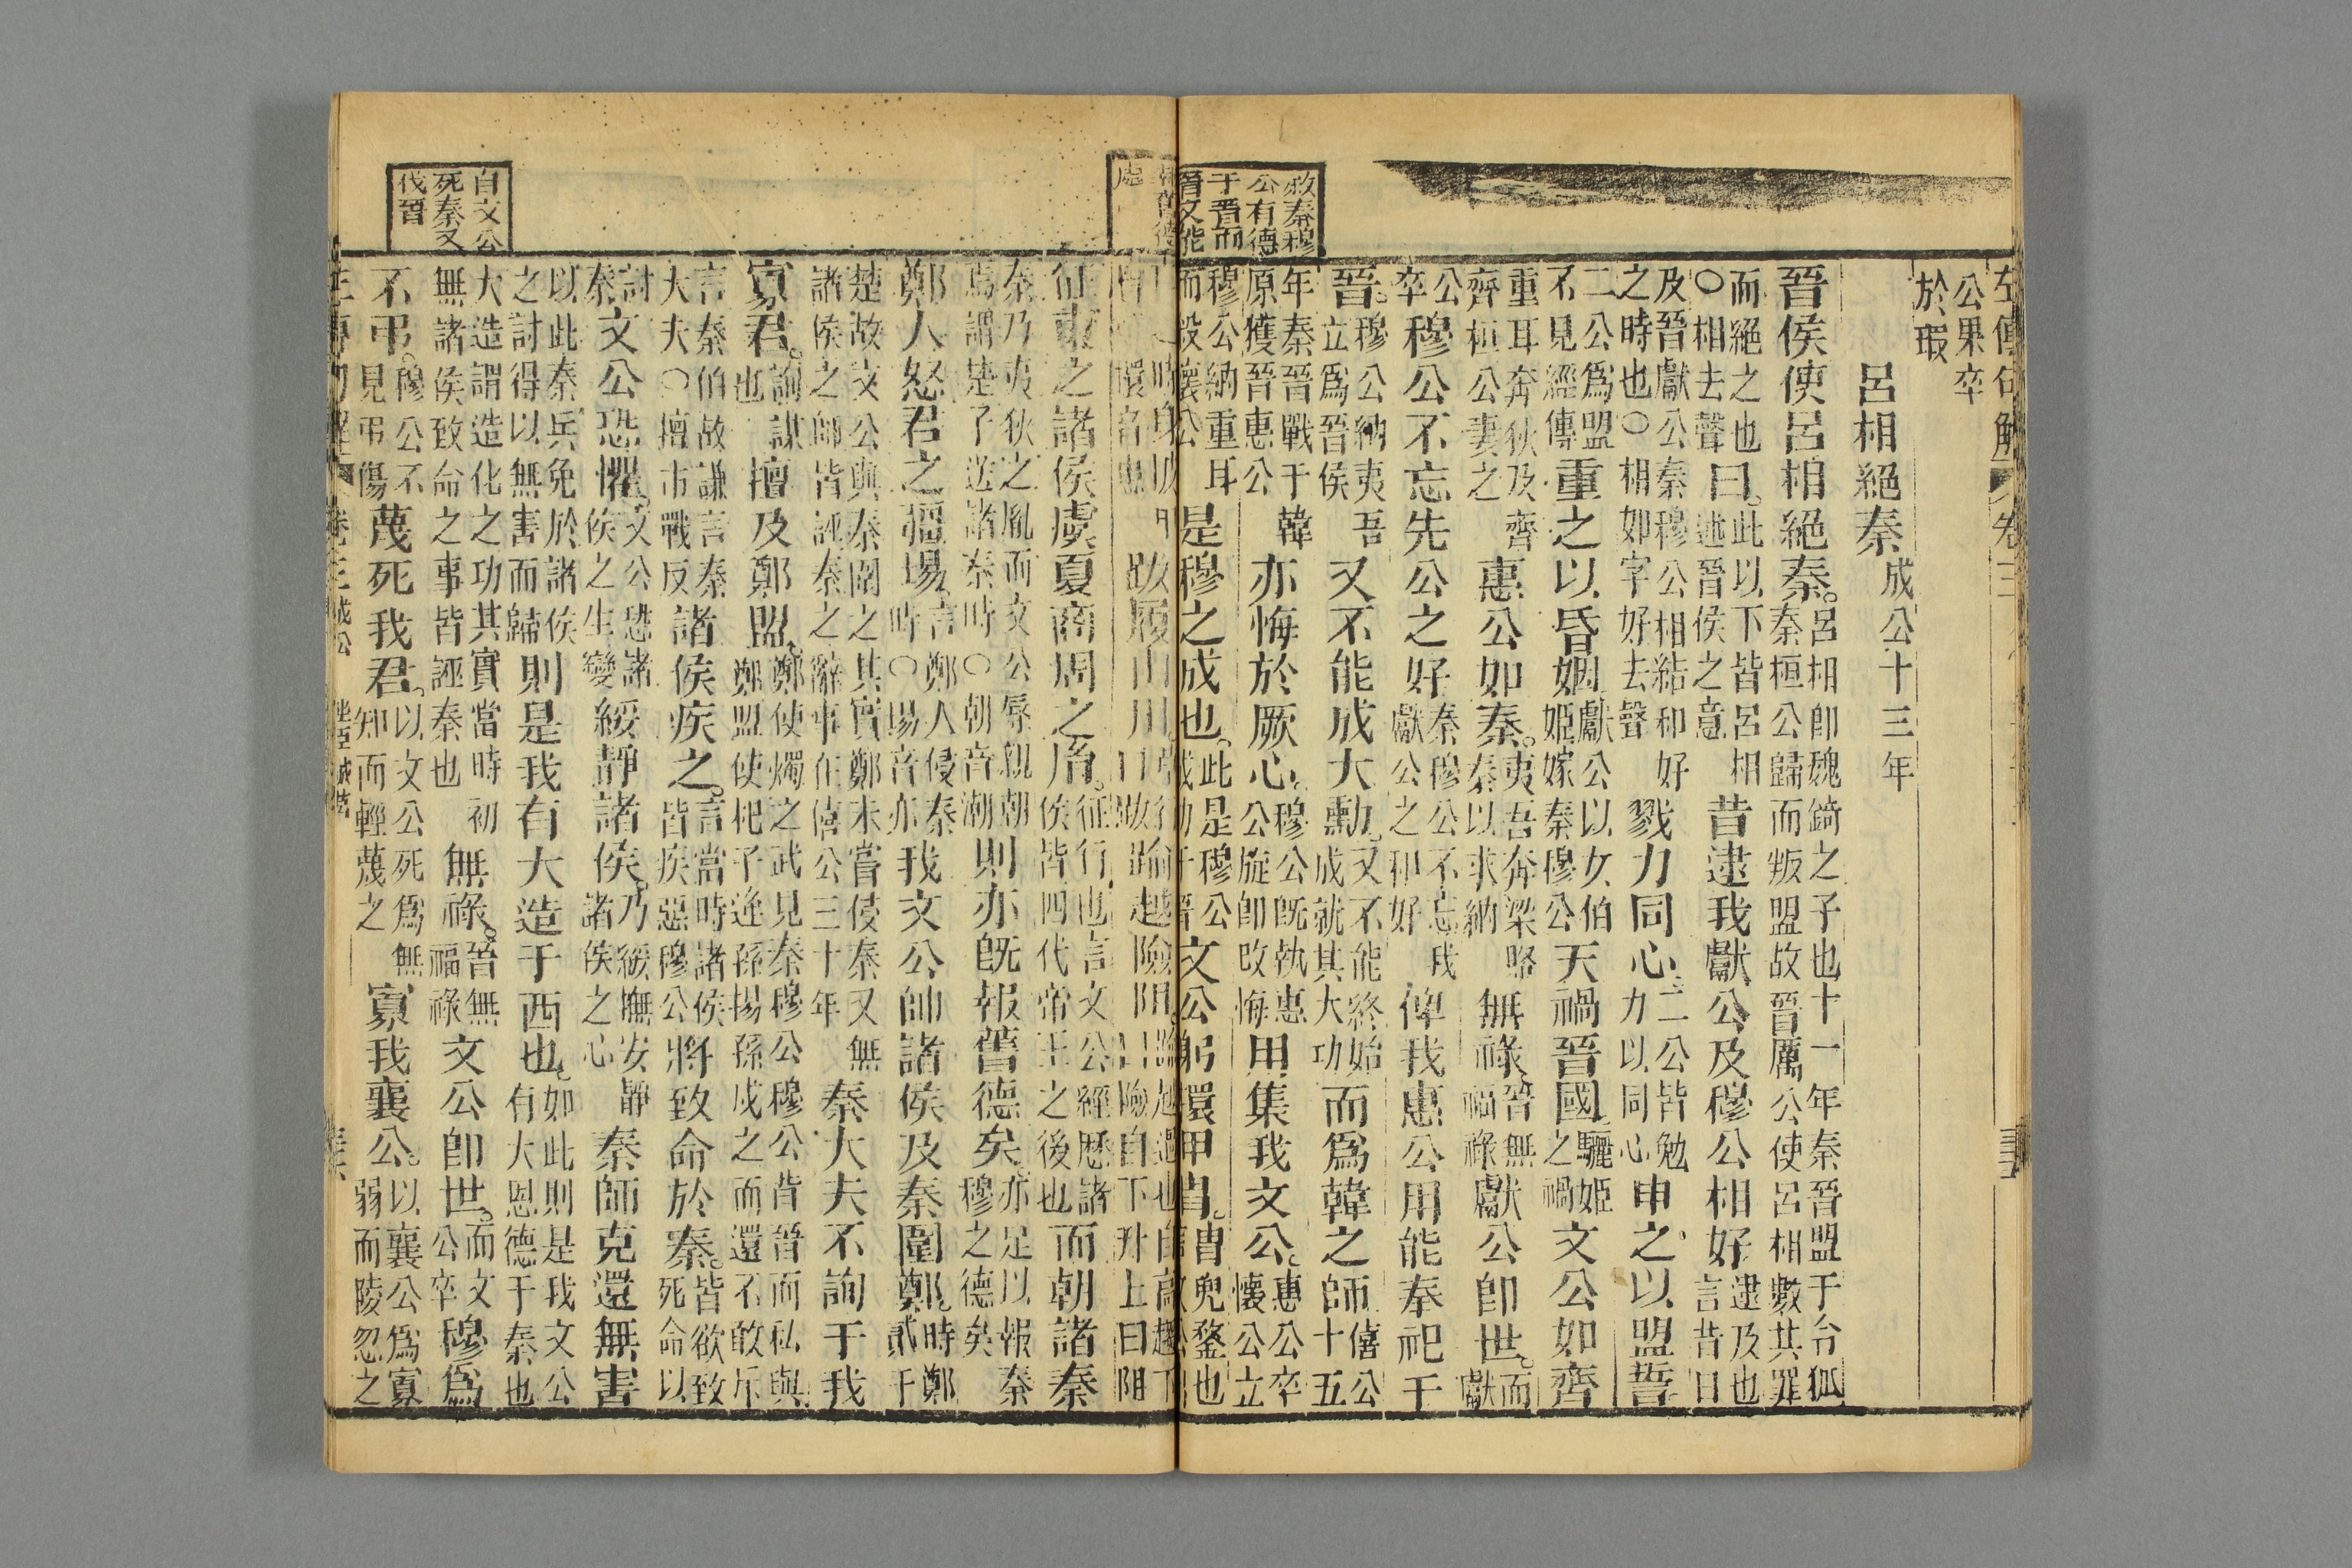 左傳句解 卷三
公果卒
於瑕
呂相絕秦成公十三年
晉侯使呂相絕秦。呂相卽魏錡之子也十一年秦晉盟于令狐
秦桓公歸而叛盟故晉厲公使呂相數其罪
而絕之也
〇相去聲曰。此以下皆呂相
述晉侯之意昔逮我獻公及穆公相好逮及也
言昔日
及晉獻公秦穆公相結和好
之時也〇相如字好去聲戮力同心。二公皆勉
力以同心申之以盟誓
二公爲盟
不見經傳重之以昏姻獻公以女伯
姬嫁秦穆公天禍晉國驪姬
之禍文公如齊
重耳奔狄及齊
齊桓公妻之惠公如秦。夷吾奔梁賂
秦以求納無祿晉無
福祿獻公卽世。而
獻
公
卒穆公不忘先公之好秦穆公不忘我
獻公之和好俾我惠公用能奉祀于
晉。穆公納夷吾
立爲晉侯又不能成大勳。又不能終始
成就其大功而爲韓之師僖公
十五
年秦晉戰于韓
原獲晉惠公亦悔於厥心。穆公旣執惠
公旋卽改悔用集我文公。惠公卒
懷公立
穆公納重耳
而殺懷公是穆之成也。此是穆公
文公躬還甲冑。冑兜鍪也
跋履山川
踰越險阻
險自下升上曰阻
征東之諸侯虞夏商周之胤。征行也言文公經歷諸
侯皆四代帝王之後也而朝諸秦
秦乃夷狄之胤而文公辱親朝
焉謂楚子送諸秦時〇朝音潮則亦旣報舊德矣。亦足以報秦
穆之德矣
鄭人怒君之疆埸。言鄭人侵秦
時〇埸音亦我文公帥諸侯及秦圍鄭。時鄭
貳于
楚故文公與秦圍之其實鄭未嘗侵秦又無
諸侯之師皆誣秦之辭事在僖公三十年秦大夫不詢于我
寡君。詢謀
也擅及鄭盟。鄭使燭之武見秦穆公穆公背晉而私與
鄭盟使杞子逄孫揚孫戍之而還不敢斥
言秦伯故謙言秦
大夫〇擅市戰反諸侯疾之。言當時諸侯
皆疾惡穆公將致命於秦。皆欲致
死命以
討
秦文公恐懼。文公恐諸
侯之生變綏靜諸侯。乃綏撫安靜
諸侯之心秦師克還無害
以此秦兵免於諸侯
之討得以無害而歸則是我有大造于西也。如此則是我文公
有大恩德于秦也
大造謂造化之功其實當時初
無諸侯致命之事皆誣秦也無祿。晉無
福祿文公卽世。而文
公卒穆爲
不弔。穆公不
見弔傷蔑死我君。以文公死爲無
知而輕蔑之寡我襄公。以襄公爲寡
弱而陵忽之
敘秦穆
公有德
于晉而
晉又能
自文公
死秦又
伐晉